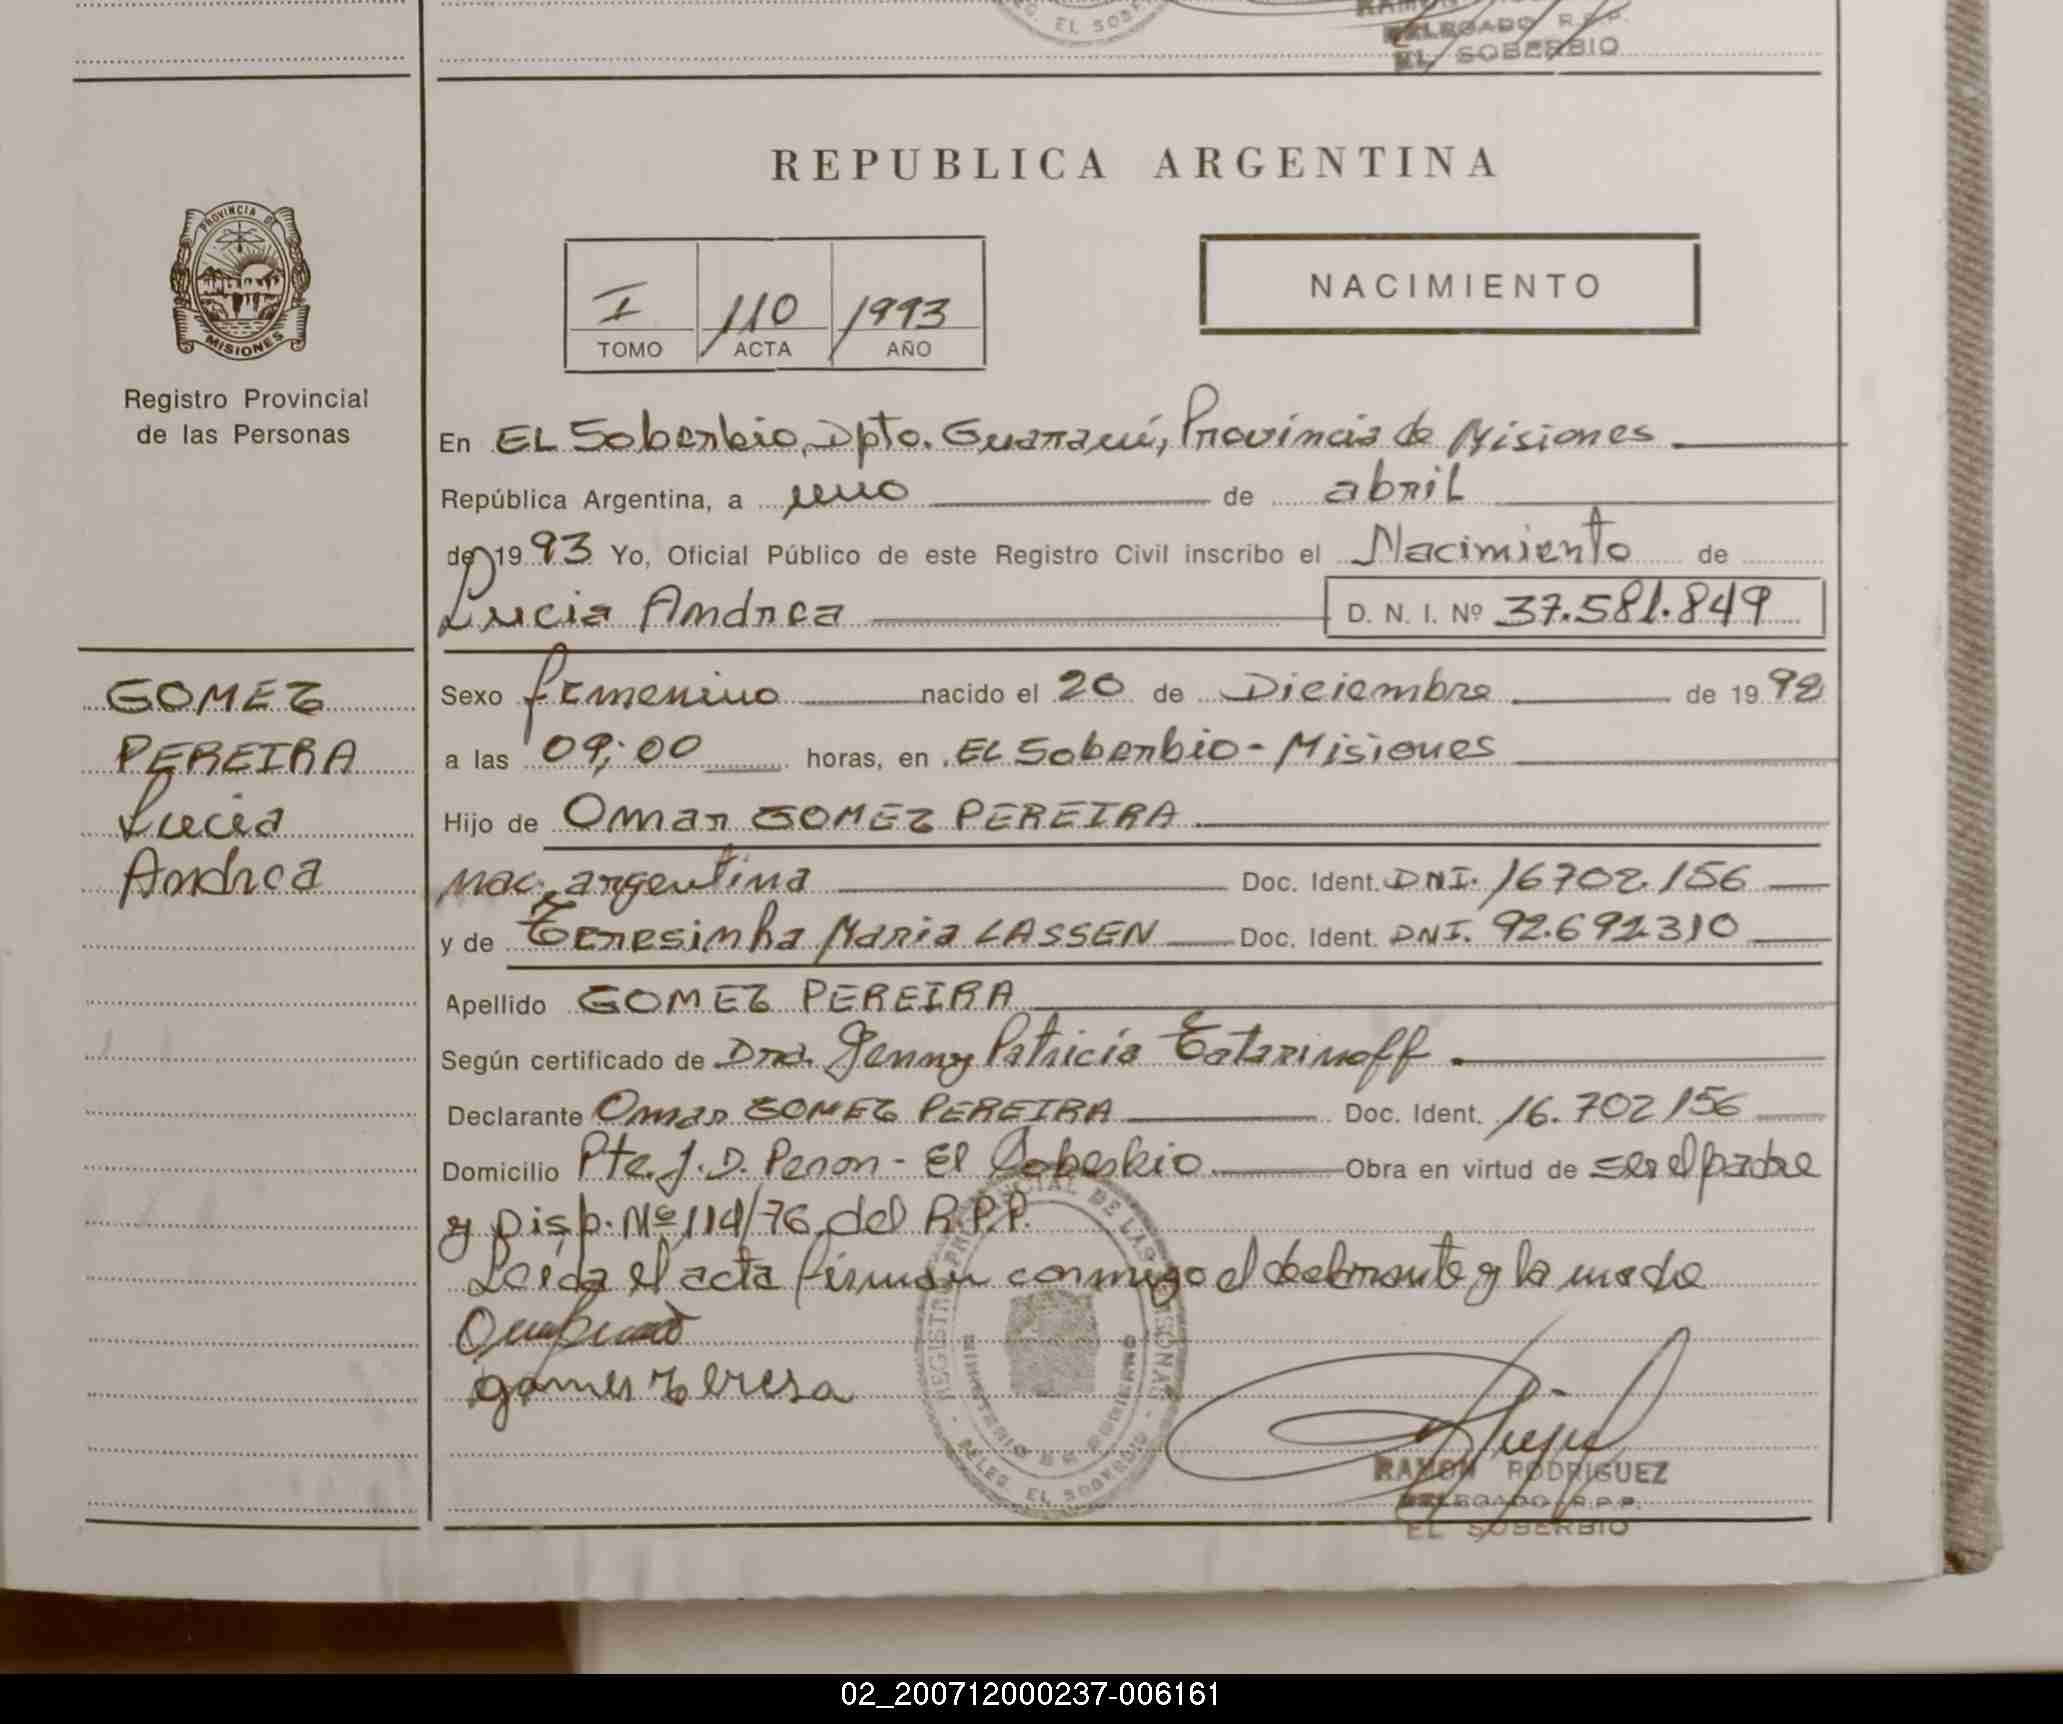 EL SOBE
DELEGADO R.P.P.
EL SOBERBIO
REPUBLICA ARGENTINA
PROVINCIA DE
MISIONES
Registro Provincial
de las Personas
I 110 1993
TOMO ACTA AÑO
NACIMIENTO
En EL Soberbio, Dpto. Guaraní, Provincia de Misiones
República Argentina, a uno de abril
de 19 93 Yo, Oficial Público de este Registro Civil inscribo el Nacimiento de
Lucia Andrea D. N. I. Nº 37.581.849
GOMEZ
PEREIRA
Lucia
Andrea
Sexo femenino nacido el 20 de Diciembre de 19 92
a las 09;00 horas, en EL Soberbio - Misiones
Hijo de Omar GOMEZ PEREIRA
nac. argentina Doc. Ident. DNI. 16702.156
y de Teresinha Maria LASSEN Doc. Ident. DNI. 92.692310
Apellido GOMEZ PEREIRA
Según certificado de Dra. Jenny Patricia Tatarinoff.
Declarante Omar GOMEZ PEREIRA Doc. Ident. 16.702156
Domicilio Pte. J. D. Peron - El Soberbio Obra en virtud de ser el padre
y Disp. Nº 114/76 del R.P.P.
Leida el acta firman conmigo el declarante y la madre
gomes teresa
REGISTRO PROVINCIAL DE LAS PERSONAS
MINISTERIO DE GOBIERNO
DELEG. EL SOBERBIO
RAMON RODRIGUEZ
DELEGADO R.P.P.
EL SOBERBIO
02_200712000237-006161